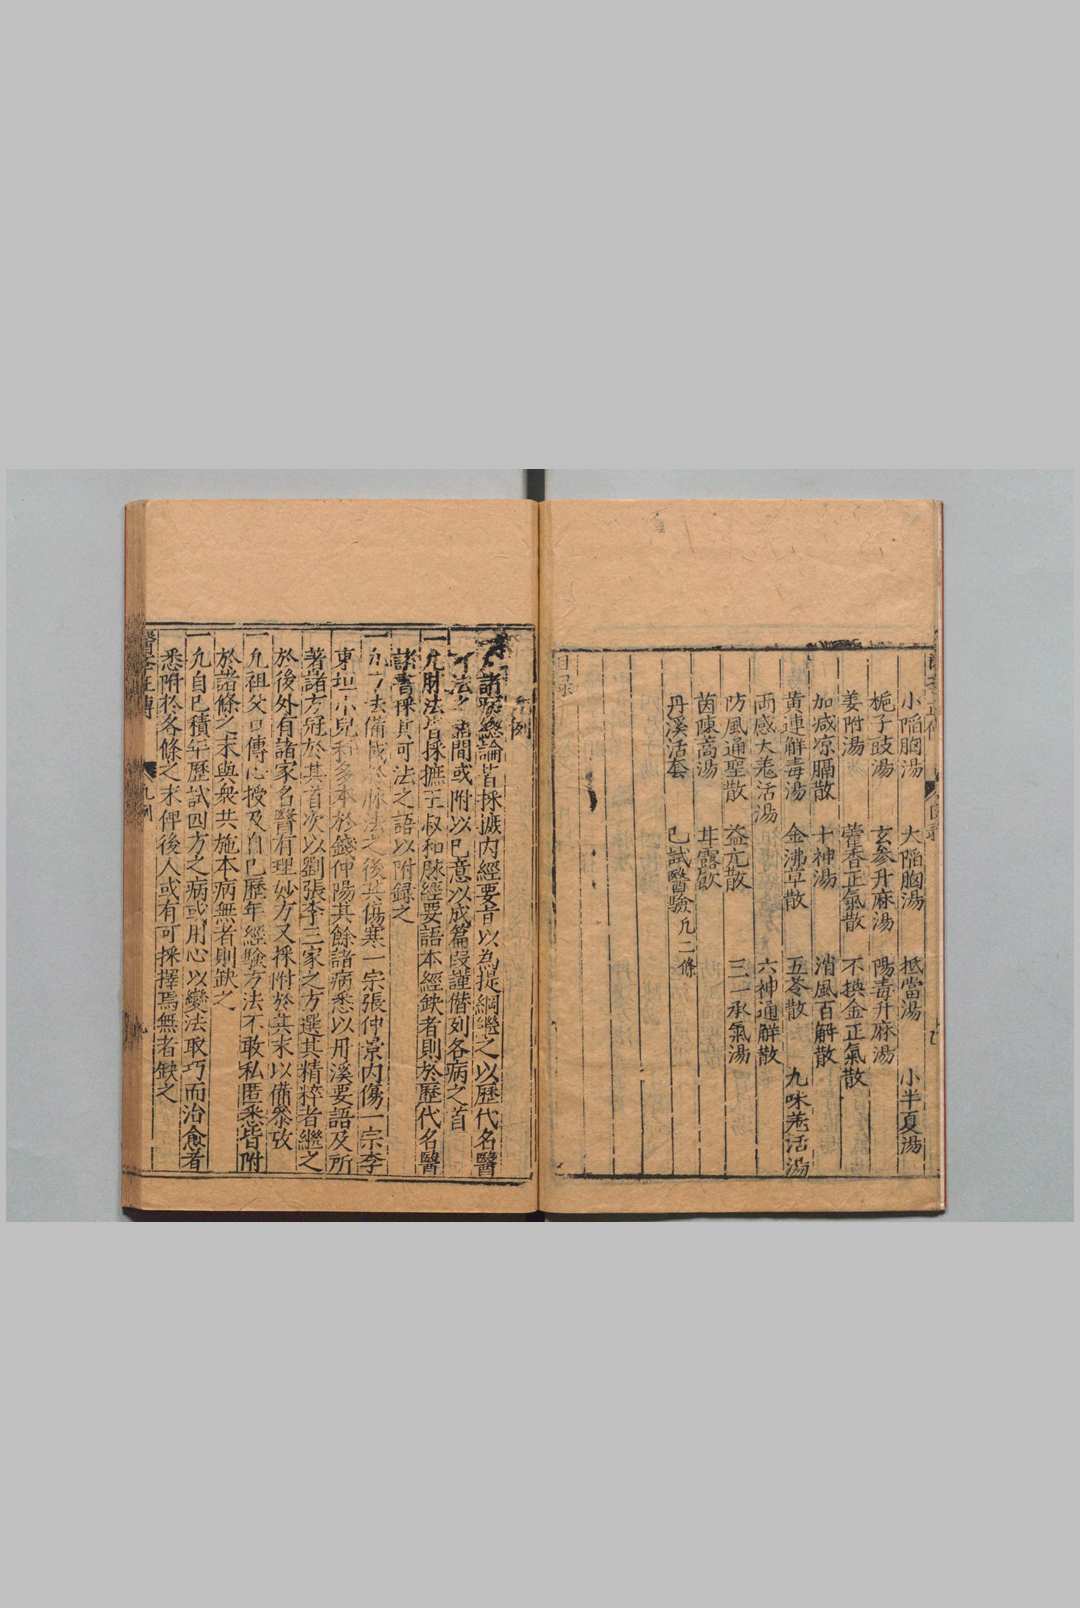 小陷胸湯 大陷胸湯 抵當湯 小半夏湯
梔子豉湯 玄參升麻湯 陽毒升麻湯
姜附湯 藿香正氣散 不換金正氣散
加減凉膈散 十神湯 消風百解散
黄連解毒湯 金沸草散 五苓散 九味羗活湯
两感大羗活湯 六神通解散
防風通聖散 益元散 三一承氣湯
茵陳蒿湯 甘露飲
丹溪活套 已試醫驗凡二條
目録
例
諸總論皆採摭内經要旨以為提綱繼之以歷代名醫
法之間或附以已意以成篇段謹僣列各病之首
一凡脉法皆採摭王叔和脉經要語本經缺者則於歷代名醫
諸書採其可法之語以附録之
一凡方法備載於脉法之後其傷寒一宗張仲景内傷一宗李
東垣小兒科多本於錢仲陽其餘諸病悉以丹溪要語及所
著諸方冠於其首次以劉張李三家之方選其精粹者繼之
於後外有諸家名醫有理妙方又採附於其末以備叅攷
一凡祖父口傳心授及自已歷年經驗方法不敢私匿悉皆附
於諸條之末與衆共施本病無者則缺之
一凡自已積年歷試四方之病或用心以變法取巧而治愈者
悉附於各條之末俾後人或有可採擇焉無者缺之
醫學正傳 凡例